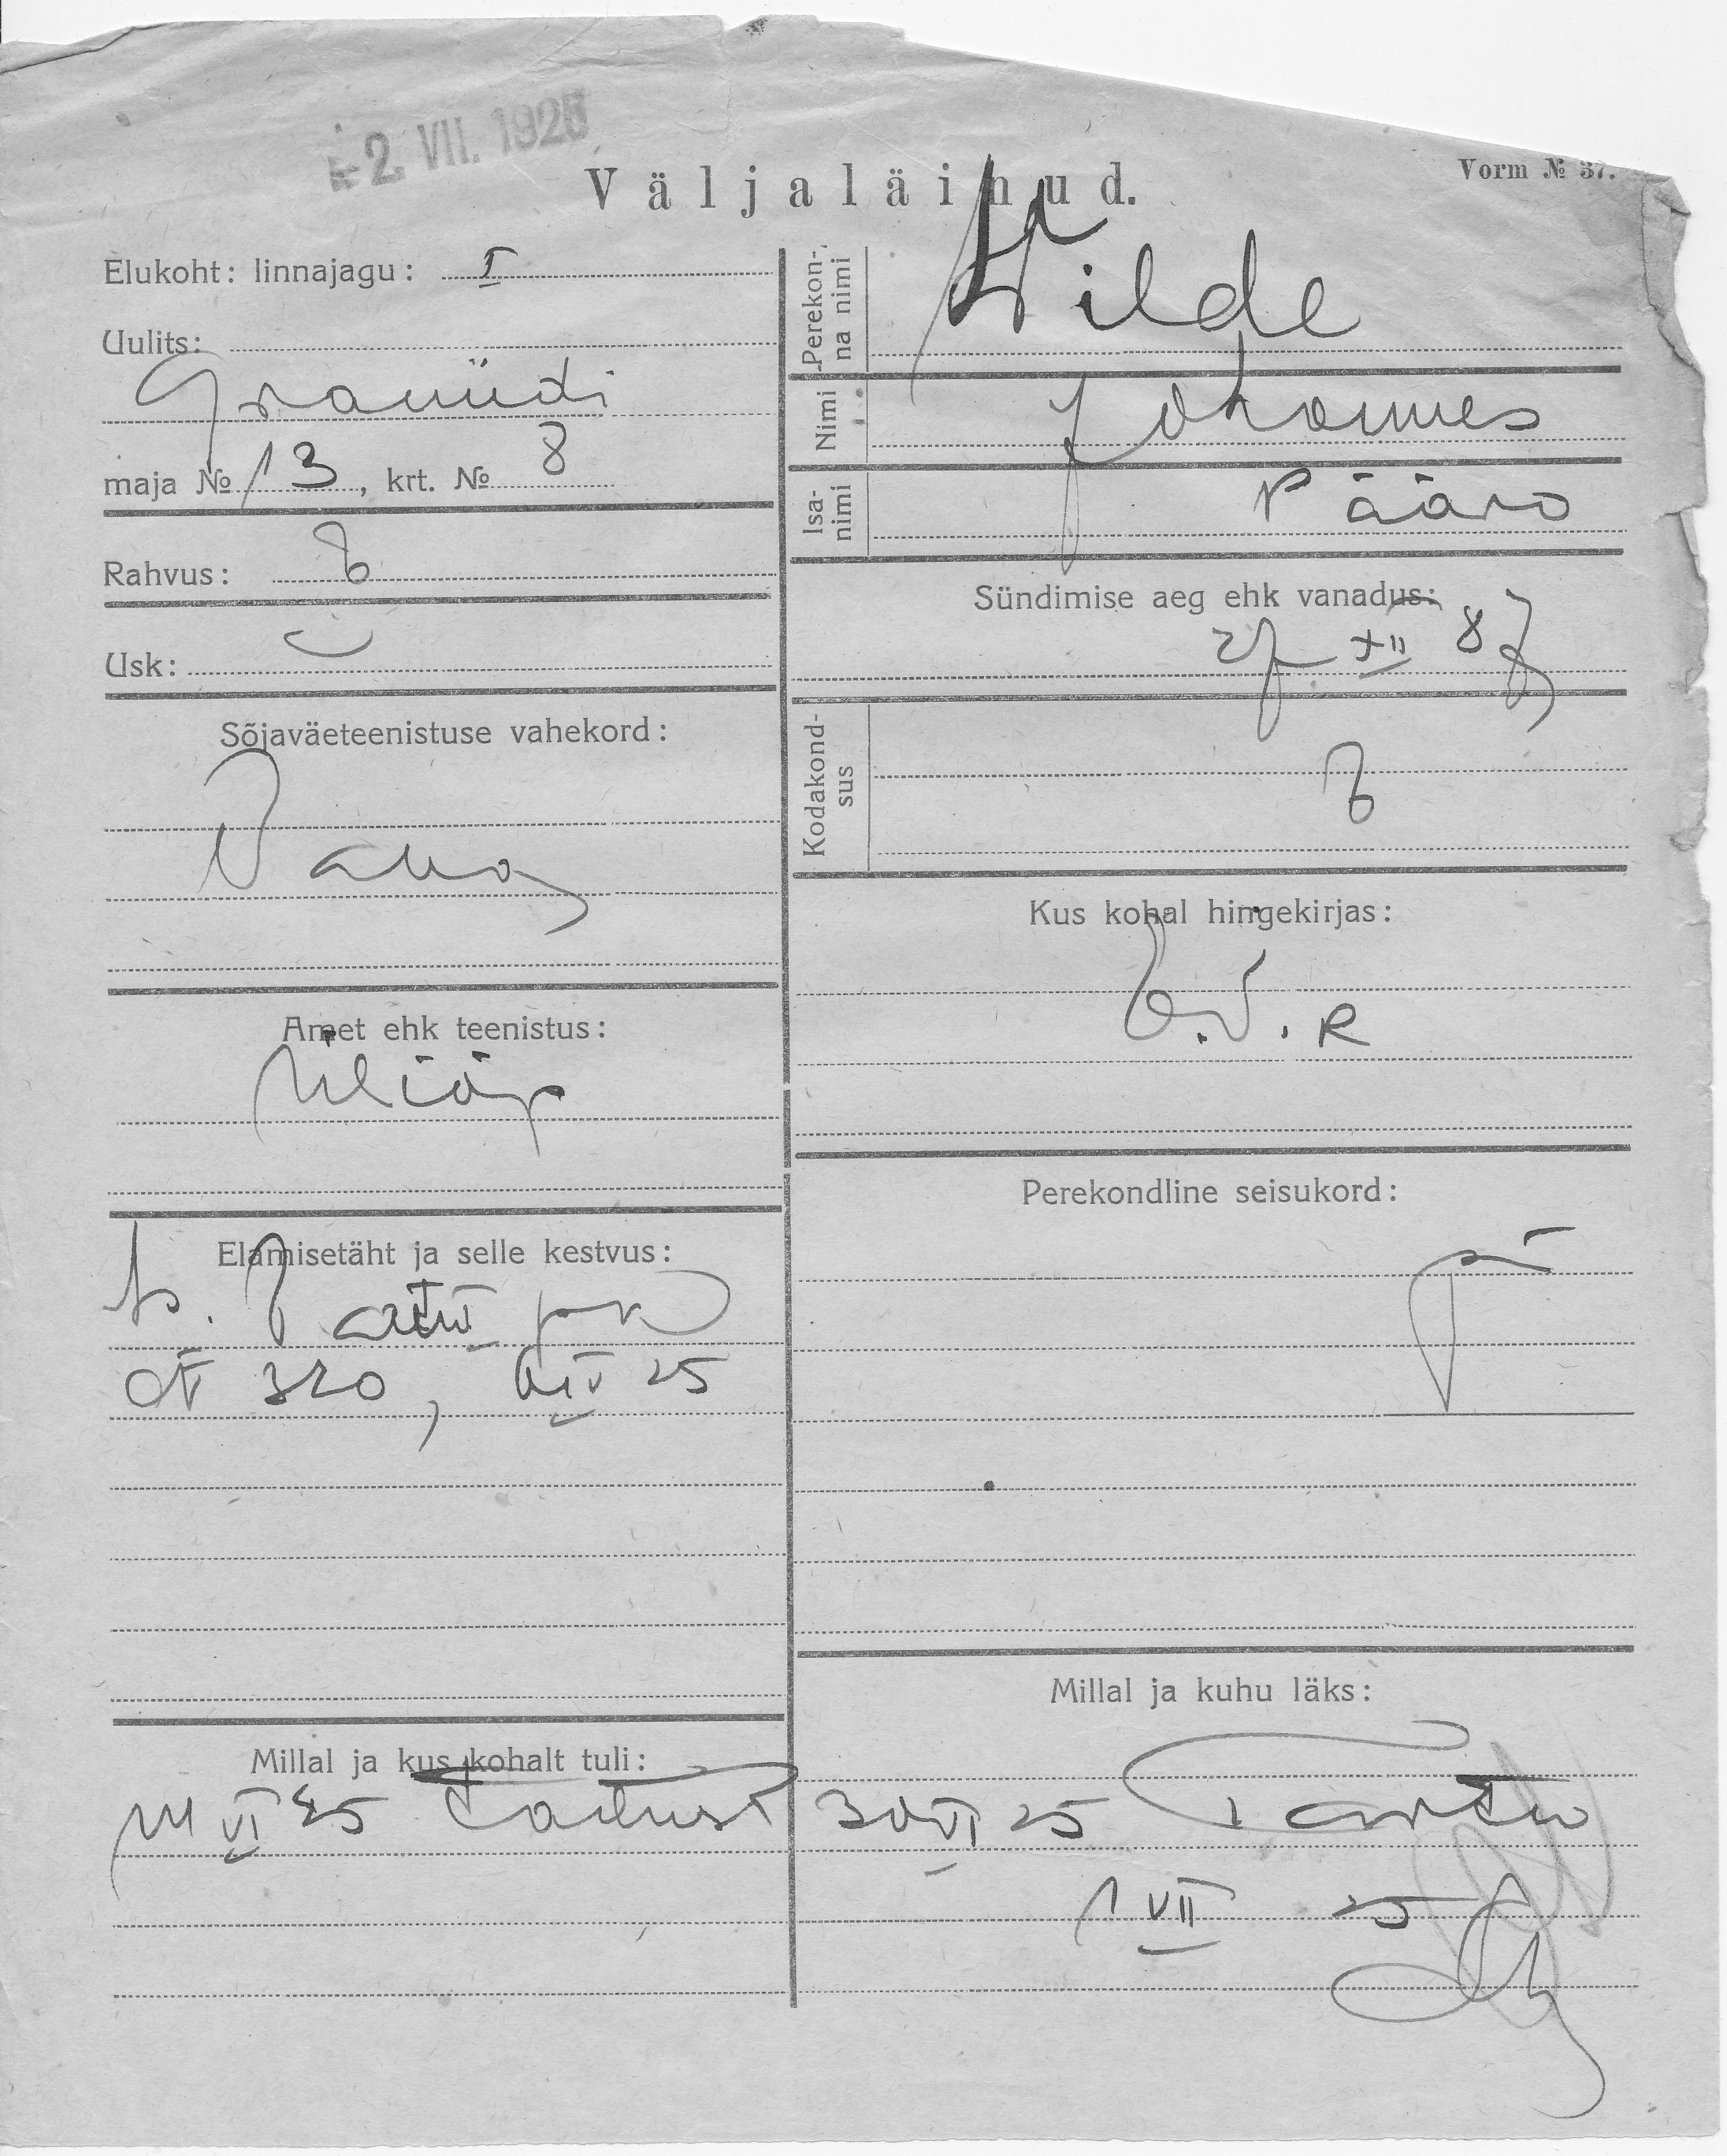 2. VII. 1925
Väljaläinud.
Vorm № 37.
Elukoht: linnajagu: I
Uulits:
Graniidi
maja № 13, krt. № 8
Rahvus: E
Usk:
Sõjaväeteenistuse vahekord:
Vana
Amet ehk teenistus:
Üliõp
Elamisetäht ja selle kestvus:
Tartu
320, 25
Millal ja kus kohalt tuli:
VI 25
Perekonna nimi
Wilde
Nimi
Johannes
Isanimi
Pääro
Sündimise aeg ehk vanadus:
27 XII 87
Kodakondsus
E
Kus kohal hingekirjas:
E.V.R
Perekondline seisukord:
Millal ja kuhu läks:
30 VI 25 Tartu
1 VII 25